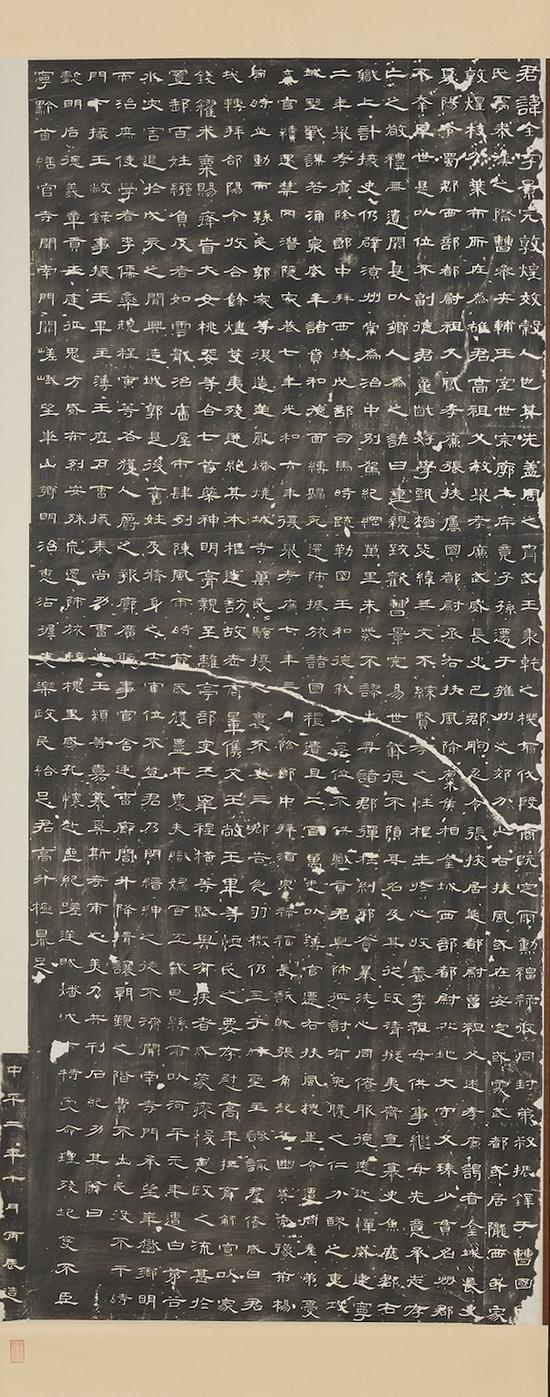 君諱全字景完敦煌效穀人也其先蓋周之胄武王秉乾之機翦伐殷商既定爾勳福祿攸同封弟叔振鐸于曹國
氏焉秦漢之際曹參夾輔王室世宗廓土斥竟子孫遷于雍州之郊分止右扶風或在安定或處武都或居隴西或家
敦煌枝分葉布所在為雄君高祖父敏舉孝廉武威長史巴郡朐忍令張掖居延都尉曾祖父述孝廉謁者金城長史
夏陽令蜀郡西部都尉祖父鳳孝廉張掖屬國都尉丞右扶風隃麋侯相金城西部都尉北地大守父琫少貫名州郡
不幸早世是以位不副德君童齔好學甄極毖緯無文不綜賢孝之性根生於心收養季祖母供事繼母先意承志存
亡之敬禮無遺闕是以鄉人為之諺曰重親致歡曹景完易世載德不隕其名及其從政清擬夷齊直慕史魚歷郡右
職上計掾史仍辟涼州常為治中別駕紀綱萬里朱紫不謬出典諸郡彈枉糾邪貪暴洗心同僚服德遠近憚威建寧
二年舉孝廉除郎中拜西域戊部司馬時疏勒國王和德弒父篡位不供職貢君興師征討有兗膿之仁分醪之惠攻
城野戰謀若涌泉威牟諸賁和德面縛歸死還師振旅諸國禮遺且二百萬悉以薄官遷右扶風槐里令遭同產弟憂
棄官續遇禁冈潛隱家巷七年光和六年復舉孝廉七年三月除郎中拜酒泉祿福長訞賊張角起兵幽冀兗豫荊楊
同時並動而縣民郭家等復造逆亂燔燒城寺萬民騷擾人褱不安三郡告急羽檄仍至于時聖主諮諏群僚咸曰君
哉轉拜郃陽令收合餘燼芟夷殘迸絕其本根遂訪故老商量儁艾王敞王畢等恤民之要存慰高年撫育鰥寡以家
錢糴米粟賜癃盲大女桃婓等合七首藥神明膏親至離亭部吏王宰程橫等賦與有疾者咸蒙瘳悛惠政之流甚於
置郵百姓繈負反者如雲戢治廧屋市肆列陳風雨時節歲獲豐年農夫織婦百工戴恩縣前以河平元年遭白茅谷
水災害退於戌亥之間興造城郭是後舊姓及脩身之士官位不登君乃閔縉紳之徒不濟開南寺門承望華嶽鄉明
而治庶使學者李儒欒規程寅等各獲人爵之報廓廣聽事官舍廷曹廊閤升降揖讓朝覲之階費不出民役不干時
門下掾王敞錄事掾王畢主薄王歷戶曹掾秦尚功曹史王顓等嘉慕奚斯考甫之美乃共刊石紀功其辭曰
懿明后德義章貢王庭征鬼方威布烈安殊巟還師旅臨槐里感孔懷赴喪紀嗟逆賊燔城市特受命理殘圮芟不臣
寧黔首繕官寺開南門闕嵯峨望華山鄉明治惠沾渥吏樂政民給足君高升極鼎足
中平二年十月丙辰造